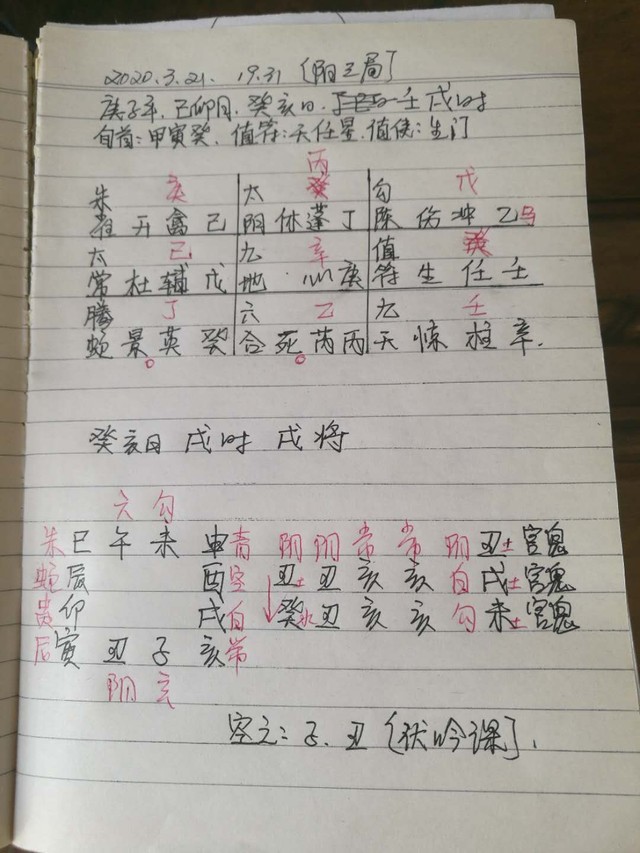 2020.3.21. 19.31 〔阳三局〕
庚子年.己卯月.癸亥日.壬戌时
旬首:甲寅癸.值符:天任星.值使:生门
丙
朱 庚 太 癸 勾 戊
雀开禽己 阴休蓬丁 陈伤冲乙马
太 己 九 辛 值 癸
常杜辅戊 地 心庚 符生任壬
螣 丁 六 乙 九 壬
蛇景英癸 合死芮丙 天惊柱辛.
癸亥日 戌时 戌将
六 勾
朱巳午未申青 阴阴常常 阴丑土官鬼
蛇辰 酉空 丑土丑亥亥 白戌土官鬼
贵卯 戌白 癸水丑亥亥 勾未土官鬼
后寅丑子亥常
阴玄
空亡:子.丑〔伏吟课〕.